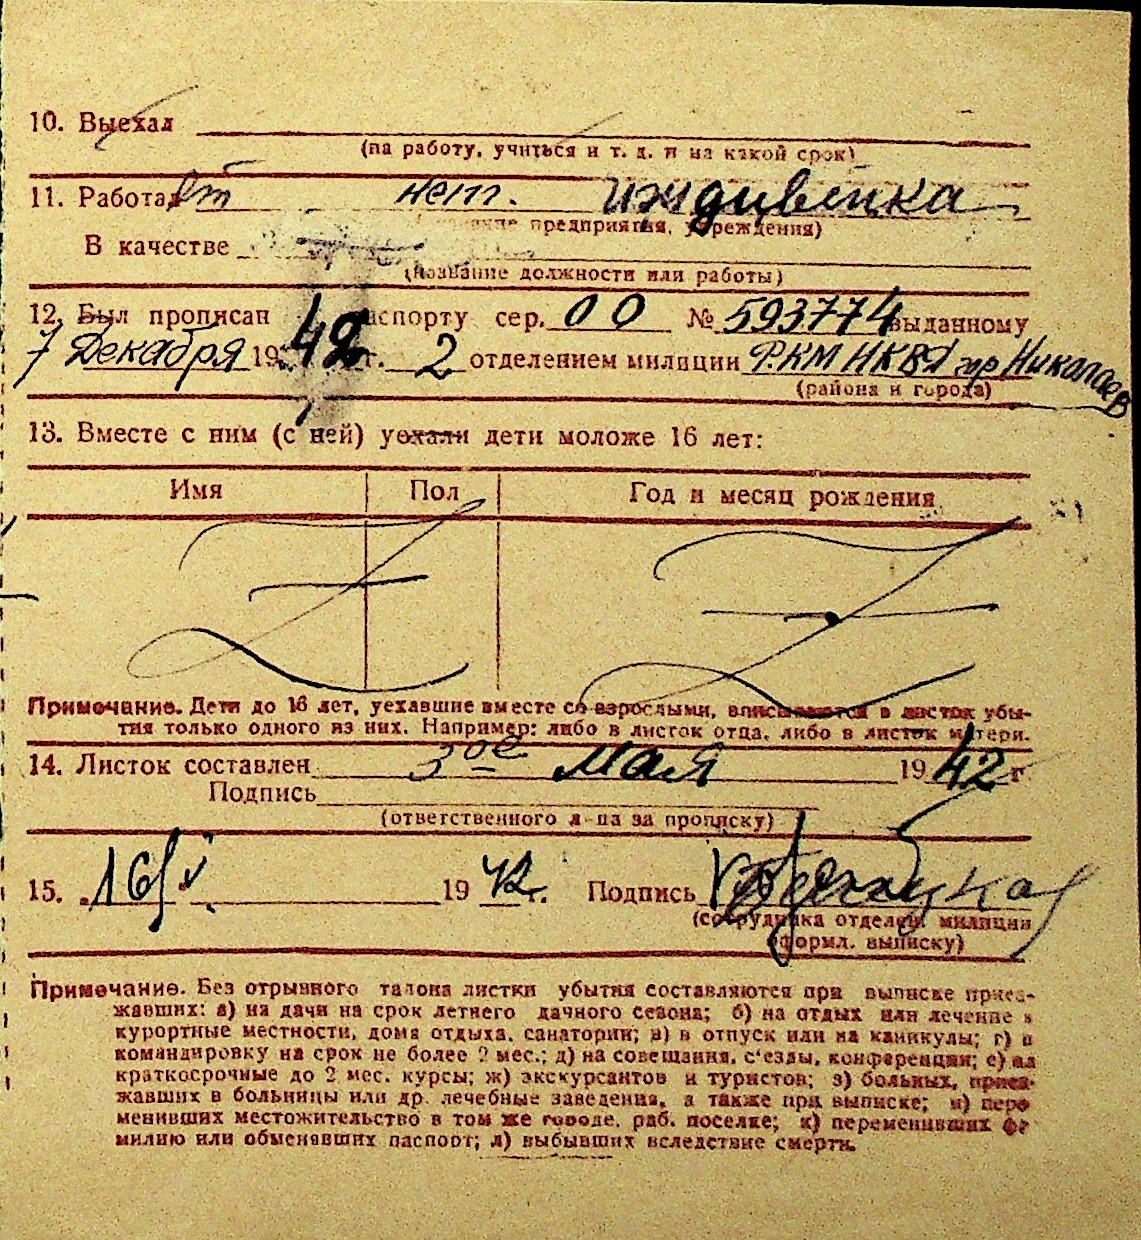 10. Выехал
(на работу, учиться и т. д. и на какой срок)
11. Работал нет. иждивенка
предприятия, учреждения)
В качестве
(название должности или работы)
12. Был прописан паспорту сер. 00 № 593774 выданному
7 Декабря 1942 г. 2 отделением милиции РКМ НКВД гор Николаев
(района и города)
13. Вместе с ним (с ней) уехали дети моложе 16 лет:
Имя Пол Год и месяц рождения
Примечание. Дети до 16 лет, уехавшие вместе со взрослыми, вписываются в листок убы-
тия только одного из них. Например: либо в листок отца, либо в листок матери.
14. Листок составлен 3ое Мая 1942 г
Подпись
(ответственного л-ца за прописку)
15. 16/V 1942 г. Подпись
(сотрудника отделен. милиции
оформл. выписку)
Примечание. Без отрывного талона листки убытия составляются при выписке приез-
жавших: а) на дачи на срок летнего дачного сезона; б) на отдых или лечение в
курортные местности, дома отдыха, санатории; в) в отпуск или на каникулы; г) в
командировку на срок не более 2 мес.; д) на совещания, с'езды, конференции; е) на
краткосрочные до 2 мес. курсы; ж) экскурсантов и туристов; з) больных, приез-
жавших в больницы или др. лечебные заведения, а также при выписке; и) пере
менивших местожительство в том же городе, раб. поселке; к) переменивших фа
милию или обменявших паспорт; л) выбывших вследствие смерти.